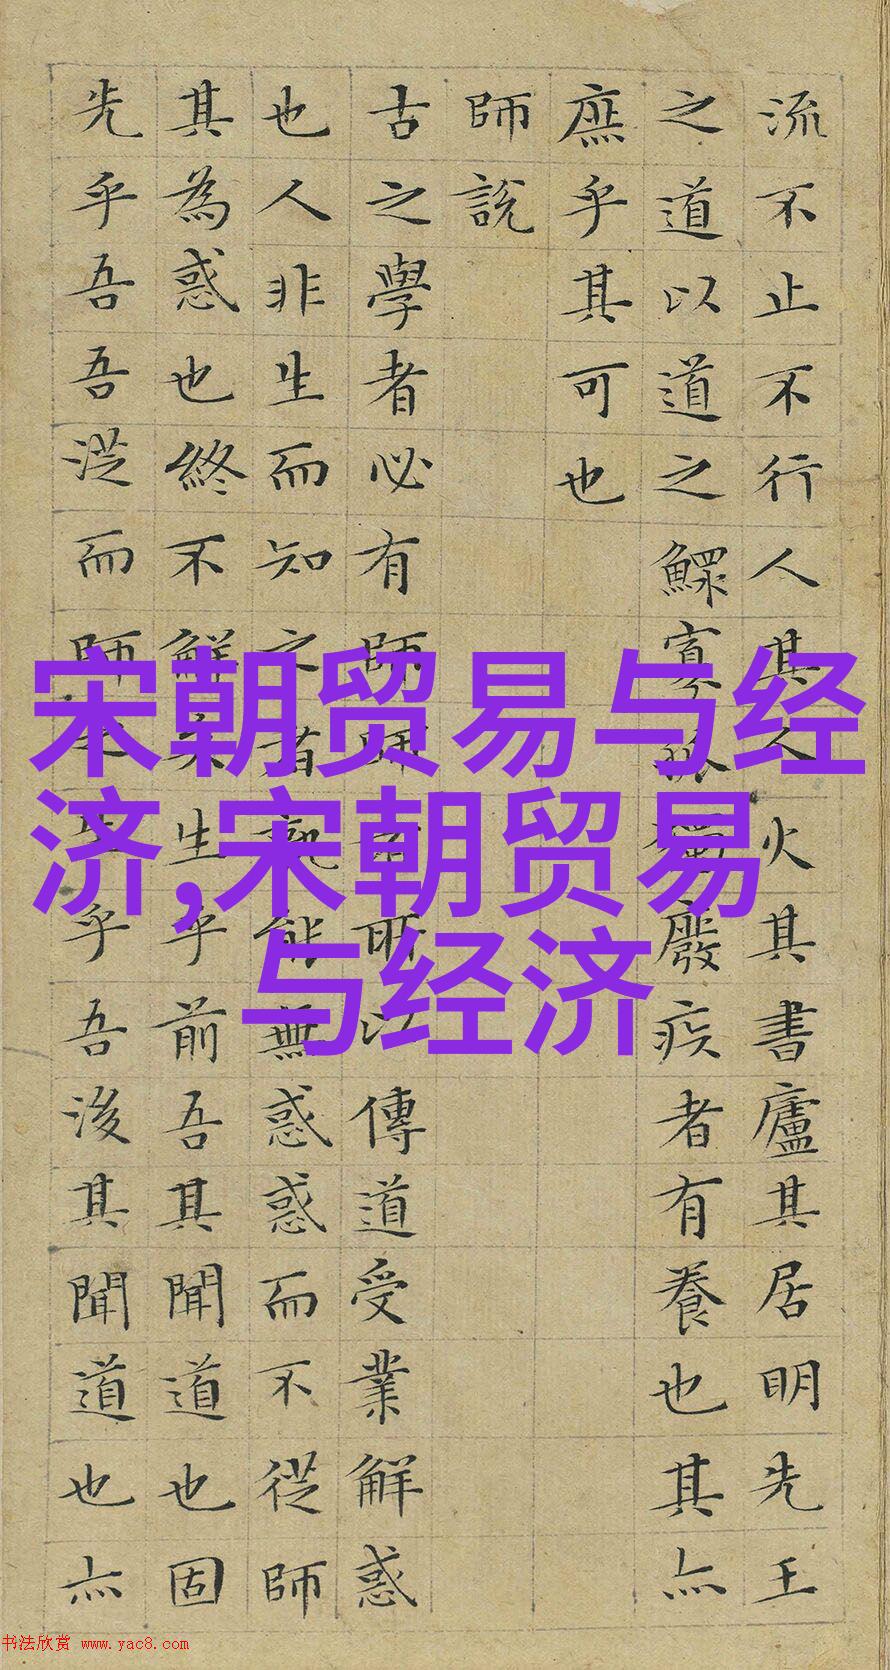 流不止不行人其人火其書廬其居明先王
之道以道之鰥寡孤獨廢疾者有養也其亦
庶乎其可也
師說
古之學者必有師師者所以傳道受業解惑
也人非生而知之者孰能無惑惑而不從師
其為惑也終不解矣生乎前吾其聞道也固
先乎吾吾從而師之生乎吾後其聞道也亦
宋朝贸易与经
济,宋朝贸易
与经济
书法欣赏 www.yac8.com